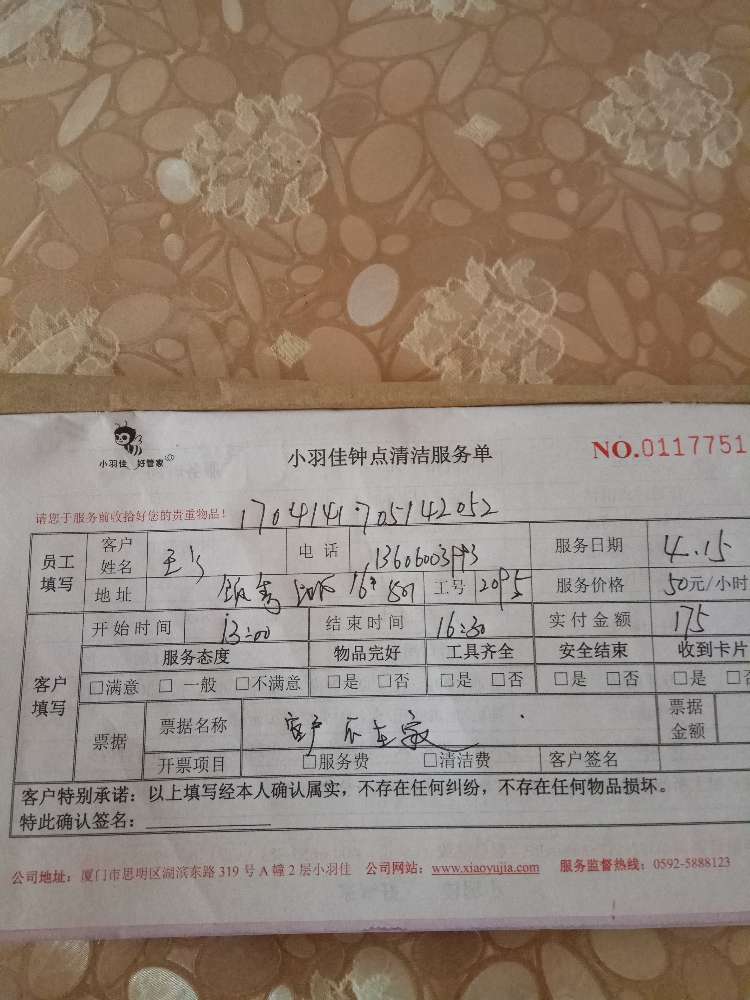 小羽佳 好管家
小羽佳钟点清洁服务单
NO.0117751
请您于服务前收拾好您的贵重物品！
1704141705142052
员工填写 客户姓名 王's 电话 服务日期 4.15
地址 工号 2095 服务价格 50元/小时
客户填写 开始时间 13:00 结束时间 16:30 实付金额 175
服务态度 物品完好 工具齐全 安全结束 收到卡片
□满意 □一般 □不满意 □是 □否 □是 □否 □是 □否 □是 □否
票据 票据名称 客户不在家 票据金额
开票项目 □服务费 □清洁费 客户签名
客户特别承诺：以上填写经本人确认属实，不存在任何纠纷，不存在任何物品损坏。
特此确认签名：
公司地址：厦门市思明区湖滨东路319号A幢2层小羽佳 公司网站：www.xiaoyujia.com 服务监督热线：0592-5888123